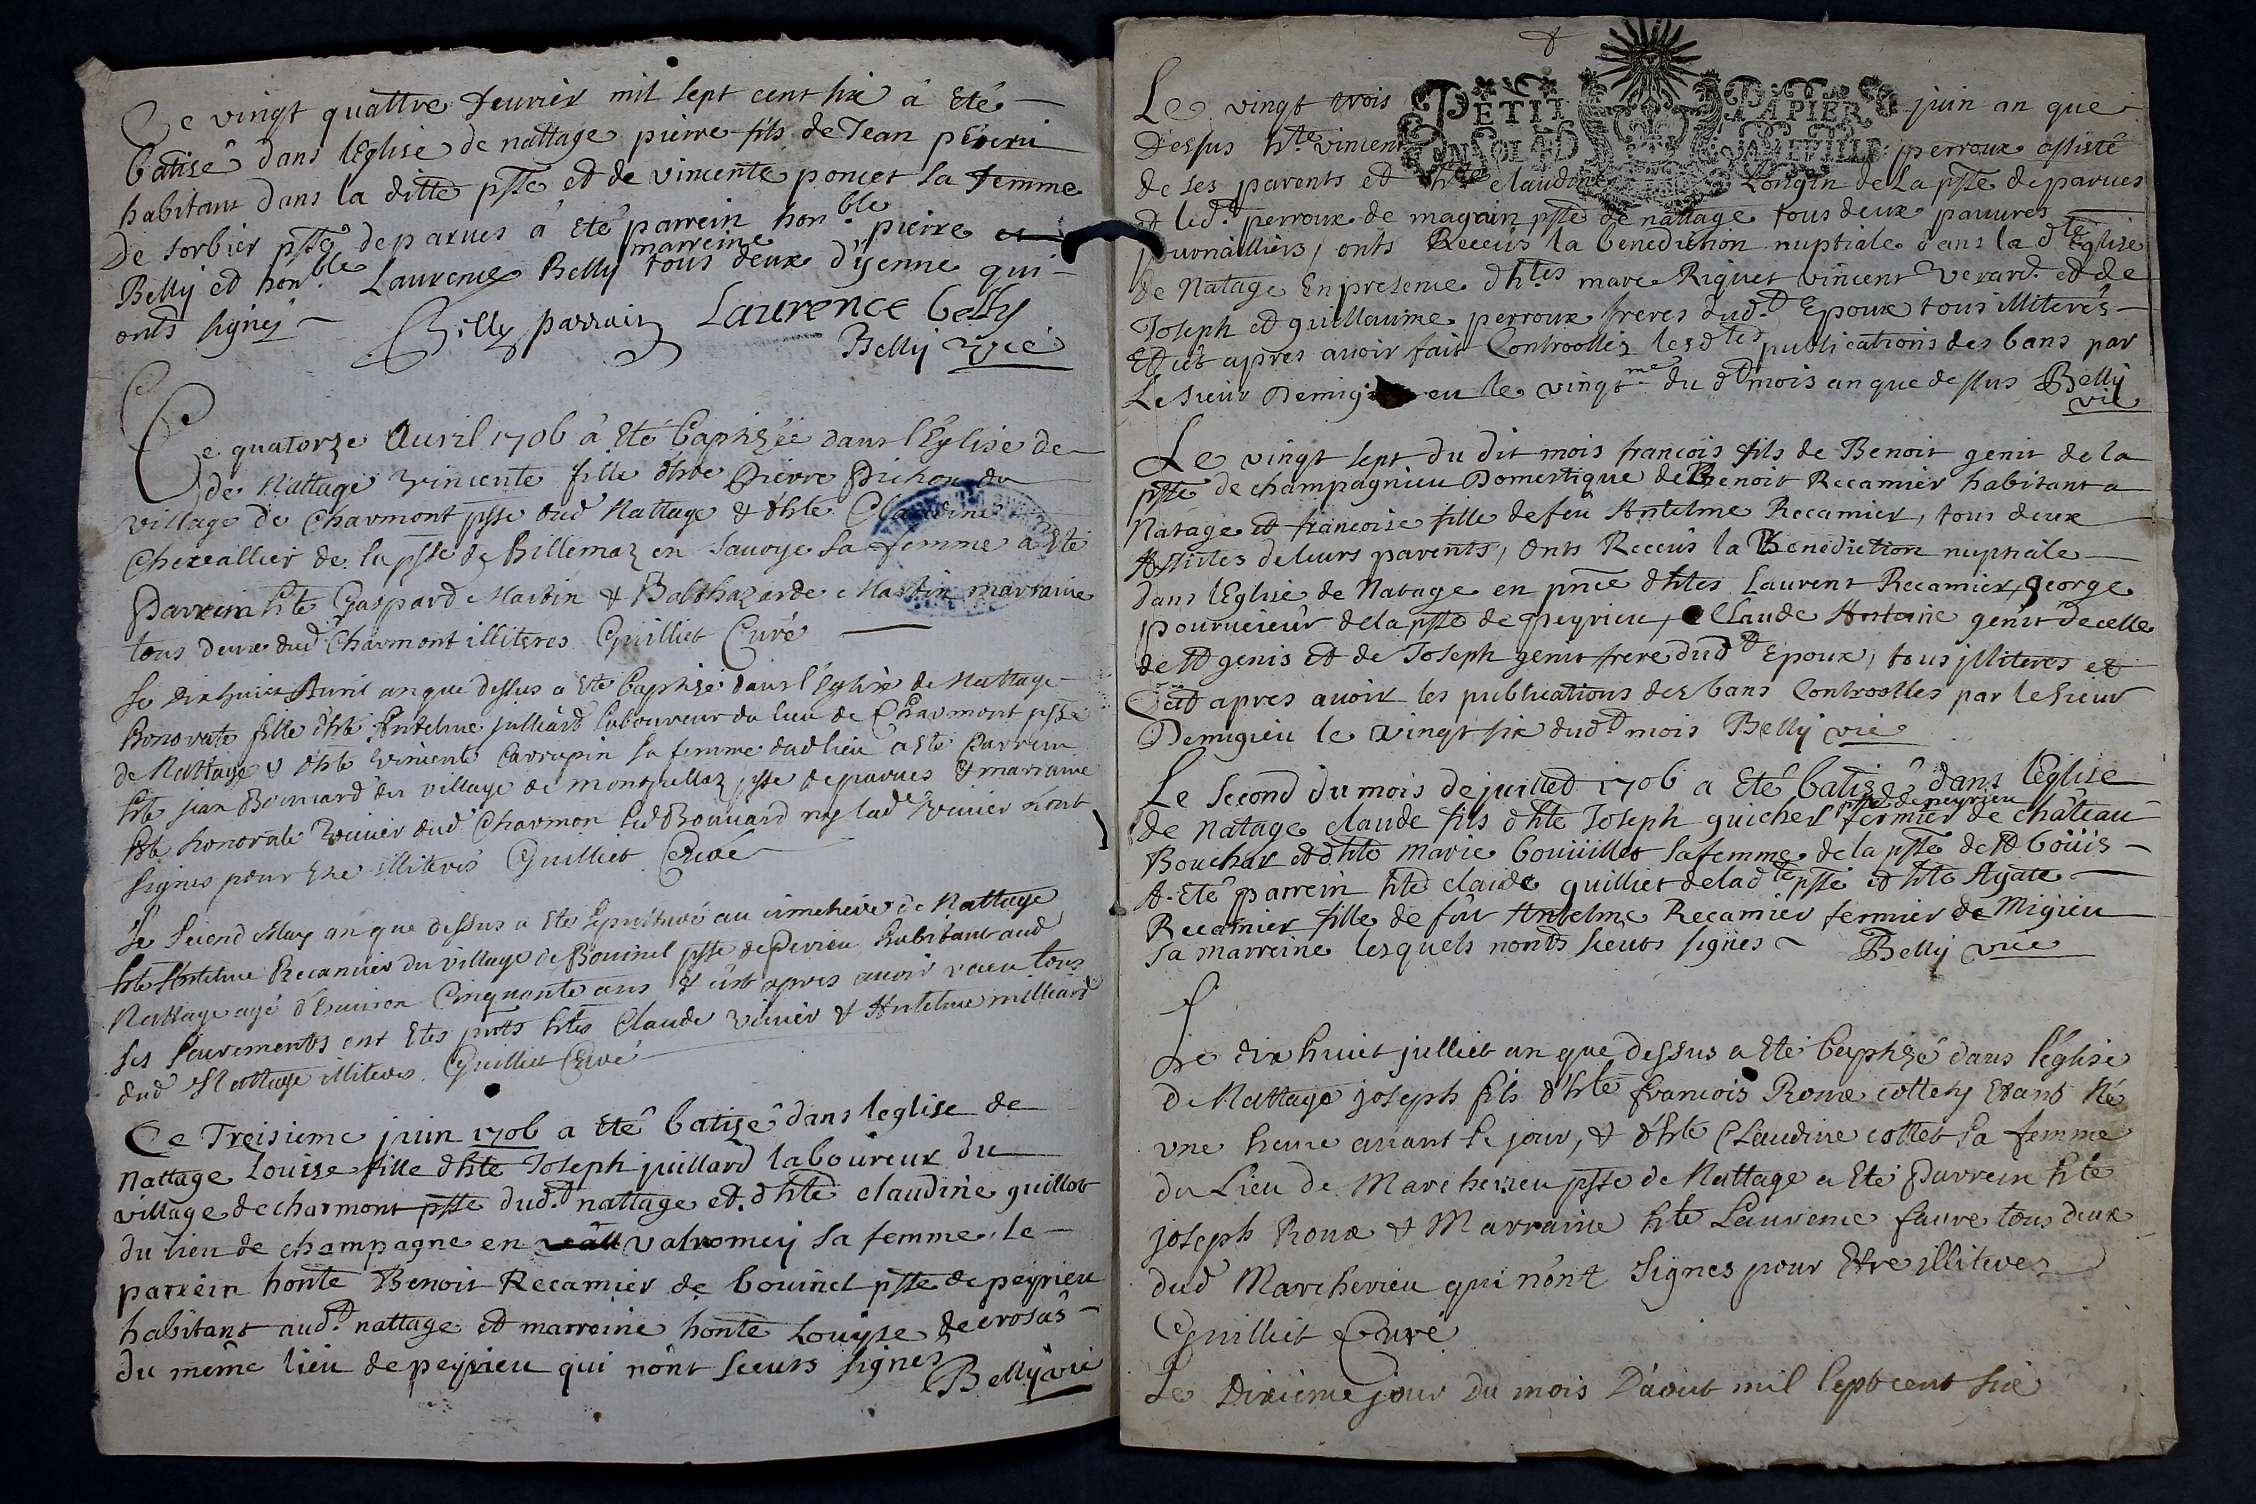 Ce vingt quattre feurier mil sept cent six à Eté
batisé dans lEglise de nattage pierre fils de Jean
habitant dans la ditte psse et de vincente poncet sa femme
de sorbier psse de parues a Eté parrein hon.ble pierre
marreine
Belly et hon.ble Laurence Belly tous deux dÿenne qui
onts signeŷ
Billy parrain Laurence belly
Belly vié
Ce quatorze Auril 1706 â Eté baptizéé dans l'Eglise de
de Nattage Vincente fille d'hte Pierre Pichon du
village de Charmont psse dud Nattage & d'hte Claudine
Chevallier de la psse de Billemaz en Sauoye sa femme a Eté
Parrein hte Gaspard Martin & Balthazarde Martin marraine
tous deux dud Charmont illiteres Guilliet Curé
Le dix huict Auril an que dessus a Eté baptizé dans l'Eglise de Nattage
honorate fille d'hte Antelme julliard laboureur du lieu de Charmont psse
de Nattage & d'hte Vincente Carrapin sa femme dud lieu a Eté Parrein
hte jean Bouuard du village de psse de parues & marraine
hte honorate Viuier dud Charmon led Bouuard ny lad Viuier n'ont
signes pour Etre illiteres Guilliet Curé
Le Second May an que dessus a Eté Sepulturé au cimetiere de Nattage
hte Antelme Recamier du village de Bouinel psse de Peirieu habitant aud
Nattage agé d'Enuiron Cinquante ans & c'est apres auoir receu tous
ses Sacrements ont Etes pnts htes Claude Viuier & Antelme milliard
dud Nattage illiteres Guilliet Curé
Ce Treisieme juin 1706 a Eté batizé dans leglise de
nattage Louise fille d'hte Joseph juillard laboureur du
village de charmont psse dud.t nattage et. d'hte claudine guillot
du lieu de champagne en valromey sa femme. le
parrein honte Benoit Recamier de bouinel psse de peyrieu
habitant aud.t nattage et marreine honte Louyse decrosas
du même lieu de peyrieu qui nônt sceurs signes Belly vié
Le vingt trois juin an que
PETIT PAPIER
dessus hte vincent perroux assisté
de ses parents et hte claudine Longin de La psse de parues
et led.t perroux de psse de nattage tous deux pauures
journailliers, onts Receus la benediction nuptiale dans la dte Eglise
de Natage En presence dhtes marc Riquet vincent Verard. et de
Joseph et guillaume perroux freres dud.t Epoux tous illiterés
Et c'est apres auoir fait Controoller les dtes publications des bans par
Le sieur Demigieu le vingtme du dt mois an que dessus Belly
vié
Le vingt sept du dit mois francois fils de Benoit genit de la
psse de champagnieu Domestique de Benoit Recamier habitant a
Natage et francoise fille de feu Antelme Recamier, tous deux
Assistes de leurs parents, Onts Receus la Benediction nuptiale
dans lEglise de Natage en pnce dhtes Laurent Recamier, george
pouruieur de la psse de peyrieu, Claude Antoine genit de celle
de St genis et de Joseph genit frere dud.t Epoux, tous illiteres et
C'est apres auoir les publications des bans Controolles par le Sieur
Demigieu le vingt six dud.t mois Belly vié
Le second du mois de juillet 1706 a Eté batizé dans lEglise
psse de peyrieu
de natage claude fils d'hte Joseph guichet fermier de château
Bouchar et d'hte marie bouiiillet sa femme de la psse de St boüis
A Eté parrein hte claude guilliet de ladte psse et hte Agate
Recamier fille de feu Antelme Recamier fermier de Migieu
sa marreine lesquels nonts sceuts signes Belly vié
Le dix huict julliet an que dessus a Eté baptizé dans l'église
de Nattage joseph fils d'hte francois Roux cottety Etant Né
vne heure auant le jour, & d'hte Claudine cottet sa femme
du Lieu de Marcherieu psse de Nattage a Eté Parrein hte
joseph Roux & Marraine hte Laurence faure tous deux
dud Marcherieu qui n'ônt signes pour Etre illiteres
Guilliet Curé
Le Dixieme jour Du mois D'aout mil sept cent six